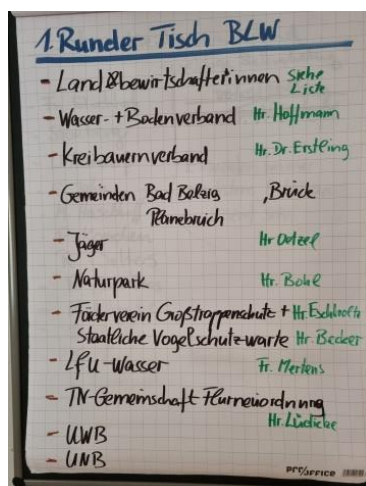 1. Runder Tisch BLW
- Landbewirtschafterinnen siehe Liste
- Wasser- + Bodenverband Hr. Hoffmann
- Kreibauernverband Hr. Dr. Erstling
- Gemeinden Bad Belzig, Brück
Planebruch
- Jäger
- Naturpark Hr. Bohl
- Förderverein Großtrappenschutz +
Staatliche Vogelschutz-warte Hr. Becker
- LfU-Wasser Fr. Mertens
- TN-Gemeinschaft Flurneuordnung
Hr. Lüdicke
- UWB
- UNB
PRO/OFFICE